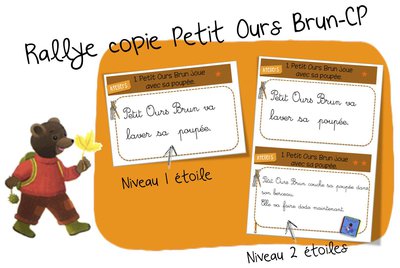 Rallye copie Petit Ours Brun-CP
ATELIERS
1 Petit Ours Brun Joue
avec sa poupée.
Petit Ours Brun va
laver sa poupée.
Niveau 1 étoile
ATELIERS
1 Petit Ours Brun Joue
avec sa poupée.
Petit Ours Brun va
laver sa poupée.
ATELIERS
1 Petit Ours Brun Joue
avec sa poupée.
Petit Ours Brun couche sa poupée dans
son berceau.
Elle va faire dodo maintenant.
Niveau 2 étoiles